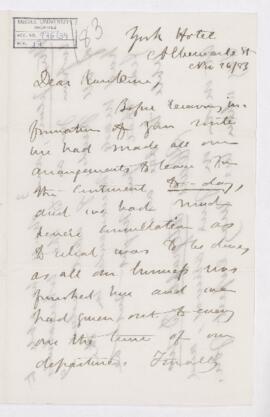 McGILL UNIVERSITY
ARCHIVES
ACC. NO.
REF.
83
York Hotel
Albemarle St
Nov 26/83
Dear
Before receiving in-
formation of your
we had made all our
arrangements to leave for
the Continent to-day,
and we had much
consultation as
to what was to be done,
as all our business was
finished here and we
had given out to every
one the time of our
departure. Finally